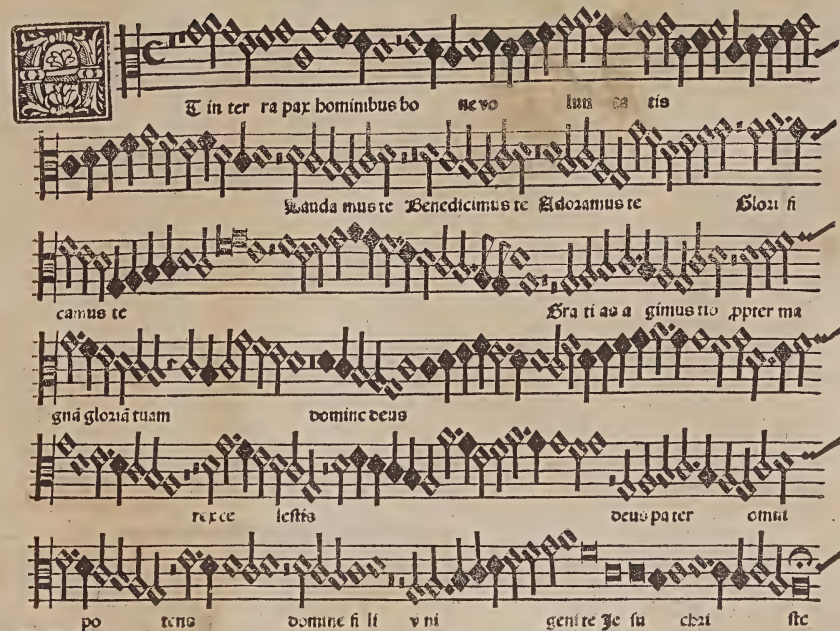 ET in ter ra pax hominibus bo ne vo lun ta tis
Lauda mus te Benedicimus te Adoramus te Glori fi
camus te Gra ti as a gimus tio ꝓpter ma
gnā gloriā tuam domine deus
rex ce lestis deus pa ter omni
po tens domine fi li v ni geni te Je su chri ste